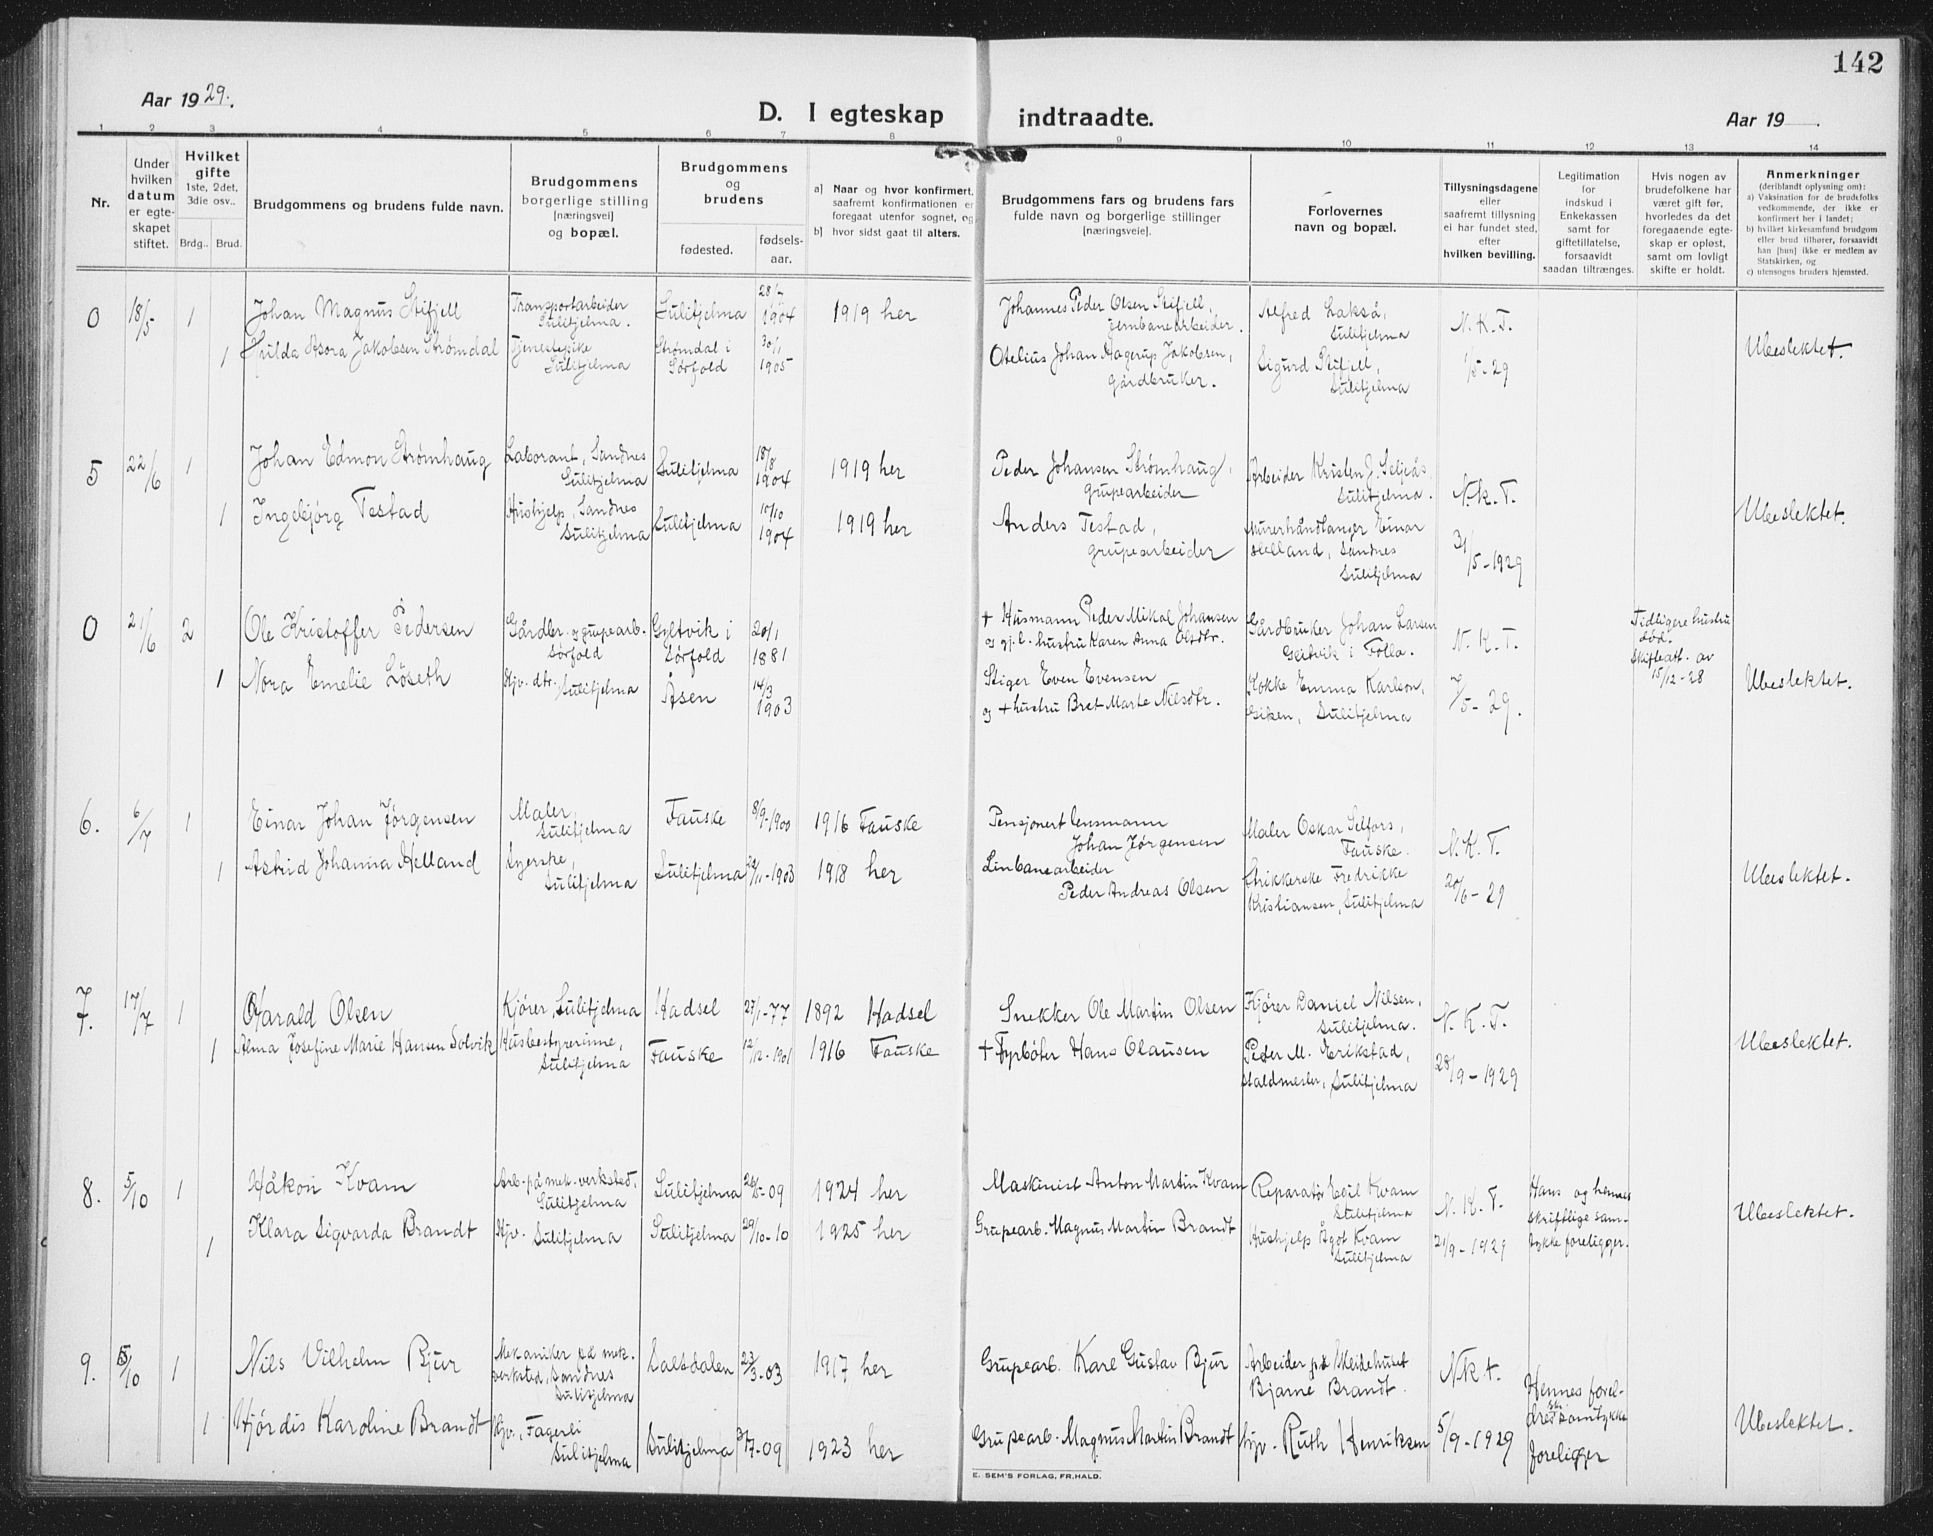 142
Aar 1929.
D. I egteskap indtraadte.
Aar 19
1 2 3 4 5 6 7 8 9 10 11 12 13 14
Nr.
Under hvilken datum er egteskapet stiftet.
Hvilket gifte
1ste, 2det, 3die osv..
Brdg.. Brud.
Brudgommens og brudens fulde navn.
Brudgommens borgerlige stilling [næringsvei] og bopæl.
Brudgommens og brudens
fødested.
fødselsaar.
a] Naar og hvor konfirmert, saafremt konfirmationen er foregaat utenfor sognet, og
b] hvor sidst gaat til alters.
Brudgommens fars og brudens fars fulde navn og borgerlige stillinger [næringsveie].
Forlovernes navn og bopæl.
Tillysningsdagene eller saafremt tillysning ei har fundet sted, efter hvilken bevilling.
Legitimation for indskud i Enkekassen samt for giftetillatelse, forsaavidt saadan tiltrænges.
Hvis nogen av brudefolkene har været gift før, hvorledes da det foregaaende egteskap er opløst, samt om lovligt skifte er holdt.
Anmerkninger
(deriblandt oplysning om):
a) Vaksination for de brudefolks vedkommende, der ikke er konfirmert her i landet;
b) hvilket kirkesamfund brudgom eller brud tilhører, forsaavidt han [hun] ikke er medlem av Statskirken, og
c) utensogns bruders hjemsted.
0 18/5 1 Johan Magnus Stifjell Transportarbeider Sulitjelma. Sulitjelma 1904 1919 her Johannes Peder Olsen Stifjell, jernbanearbeider. Alfred Lakså, Sulitjelma N.K.T.
1 Hulda Asora Jakobsen Strømdal Tjenestepike Sulitjelma Strømdal i Sørfold 30/1 1905 Otelius Johan Hagerup Jakobsen, gårdbruker. Sigurd Stifjell, Sulitjelma 1/5-29 Ubeslektet.
5 22/6 1 Johan Edmon Strømhaug Laborant, Sandnes Sulitjelma Sulitjelma 18/8 1904 1919 her Peder Johansen Strømhaug, grupearbeider Arbeider Kristen J. Seljeås, Sulitjelma. N.K.T.
1 Ingebjørg Testad Hushjelp, Sandnes Sulitjelma Sulitjelma 10/10 1904 1919 her Anders Testad, grupearbeider Murerhåndlanger Einar Helland, Sandnes Sulitjelma 31/5-1929 Ubeslektet.
0 21/6 2 Ole Kristoffer Pedersen Gårdbr. og grupearb. Sørfold Gyltvik i Sørfold 20/1 1881 + Husmann Peder Mikal Johansen og gj.l. hustru Karen Anna Olsdtr. Gårdbruker Johan Larsen Geitvik i Folla. N.K.T. Tidligere hustru død. Skifteatt. av 15/12-28
1 Nora Emelie Løseth Hjv. dtr. Sulitjelma Åsen 14/3 1903 Stiger Even Evensen og + hustru Bret Marte Nilsdtr. Kokke Emma Karlson, Giken, Sulitjelma 7/5-29. Ubeslektet.
6. 6/7 1 Einar Johan Jørgensen Maler, Sulitjelma Fauske 8/9-1900 1916 Fauske Pensjonert lensmann Johan Jørgensen Maler Oskar Selfors, Fauske. N.K.T.
1 Astrid Johanna Helland Syerske, Sulitjelma Sulitjelma /11-1903 1918 her Linbanearbeider Peder Andreas Olsen Strikkerske Fredrikke Kristiansen, Sulitjelma 20/6-29 Ubeslektet.
7. 17/7 1 Harald Olsen Kjører, Sulitjelma Hadsel 27/1-77 1892 Hadsel Snekker Ole Martin Olsen Kjører Daniel Nilsen, Sulitjelma. N.K.T.
1 Alma Josefine Marie Hansen Solvik Husbestyrerinne, Sulitjelma Fauske 12/12-1901 1916 Fauske + Fyrbøter Hans Olausen Peder M. Erikstad, Staldmester, Sulitjelma 28/9-1929 Ubeslektet.
8. 5/10 1 Håkon Kvam Arb. på mek. verksted, Sulitjelma Sulitjelma 26/5-09 1924 her Maskinist Anton Martin Kvam Reparatør Emil Kvam Sulitjelma N.K.T. Hans og hennes skriftlige samtykke foreligger.
1 Klara Sigvarda Brandt Hjv. Sulitjelma Sulitjelma 29/10-10 1925 her Grupearb. Magnus Martin Brandt Hushjelp Ågot Kvam Sulitjelma 21/9-1929 Ubeslektet.
9. 5/10 1 Nils Vilhelm Bjur Mekaniker på mek. verksted, Sandnes Sulitjelma Saltdalen 23/3-03 1917 her Grupearb. Karl Gustav Bjur Arbeider på Skeidehuset Bjarne Brandt. N.k.t. Hennes foreldres skr. samtykke foreligger
1 Hjørdis Karoline Brandt Hjv., Fagerli Sulitjelma Sulitjelma /7-09 1923 her Grupearb. Magnus Martin Brandt Hjv. Ruth Henriksen 5/9-1929 Ubeslektet.
E. SEM'S FORLAG, FR.HALD.